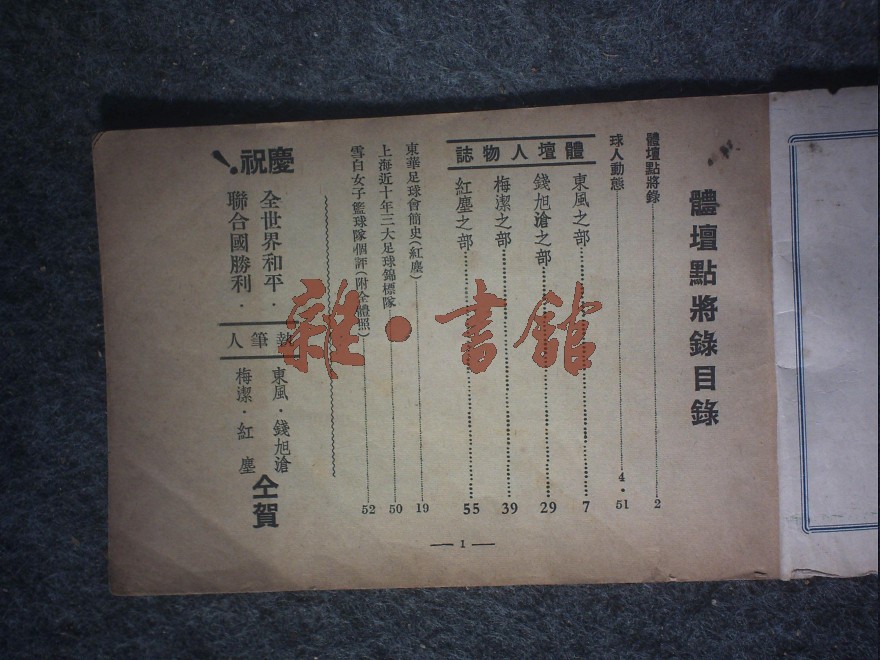 體壇點將錄目錄
體壇點將錄 2
球人動態 4·51
體壇人物誌
東風之部 7
錢旭滄之部 29
梅潔之部 39
紅塵之部 55
東華足球會簡史(紅塵) 19
上海近十年三大足球錦標隊 50
雪白女子籃球隊個評(附全體照) 52
慶祝!
全世界和平·
聯合國勝利·
執筆人
東風·錢旭滄
梅潔·紅塵
仝賀
— 1 —
雜·書館